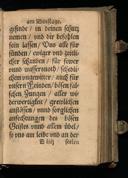 am Dinstage.
gesinde / in deinen schutz
nemen / vnd dir befohlen
sein lassen / Das alle für
schanden / ewiger vnd zeitli-
cher schanden / für fewer
vnd wassersnoth / schedli-
chem vngewitter / auch für
vnsern Feinden / bösen fal-
schen Zungen / aller wi-
derwertigkeit / grewlichen
anstössen / vnnd sorglichen
anfechtungen des bösen
Geistes vnnd allem übel /
so vns am leibe vnd an der
D iiij seelen